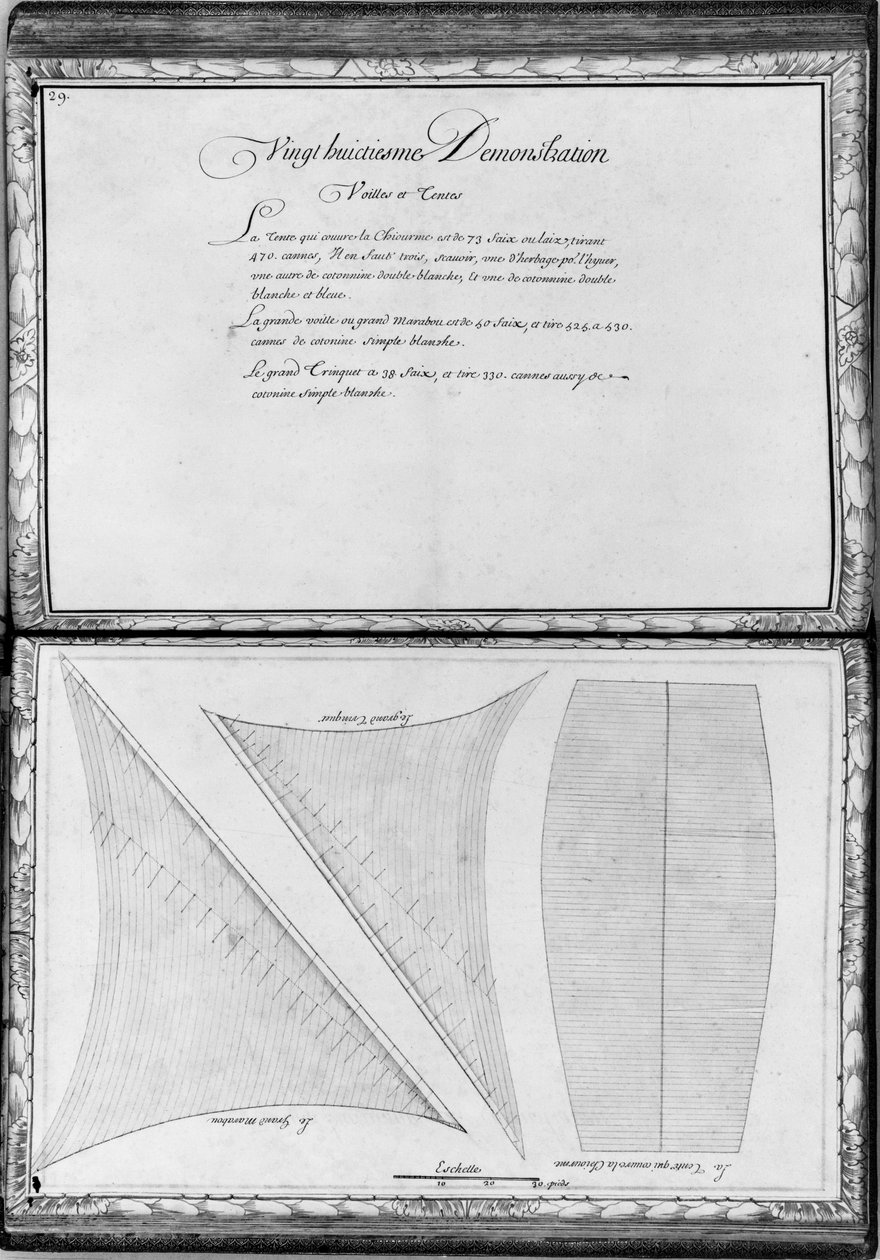 29.
Vingt huictiesme Demonstration
Voilles et Tentes
La Tente qui couure la Chiourme est de 73 faix ou laix, tirant
470. cannes, Il en faut trois, scauoir, vne d'herbage po.r l'hyuer,
vne autre de cotonnine double blanche, Et vne de cotonnine double
blanche et bleue.
La grande voille ou grand Marabou est de 50 faix, et tire 525. a 530.
cannes de cotonine simple blanche.
Le grand Trinquet a 38 faix, et tire 330. cannes aussy de
cotonine simple blanche.
Le grand Trinquet
Le Grand Marabou
La Tente qui couure la Chiourme
Eschelle
10 20 30 pieds